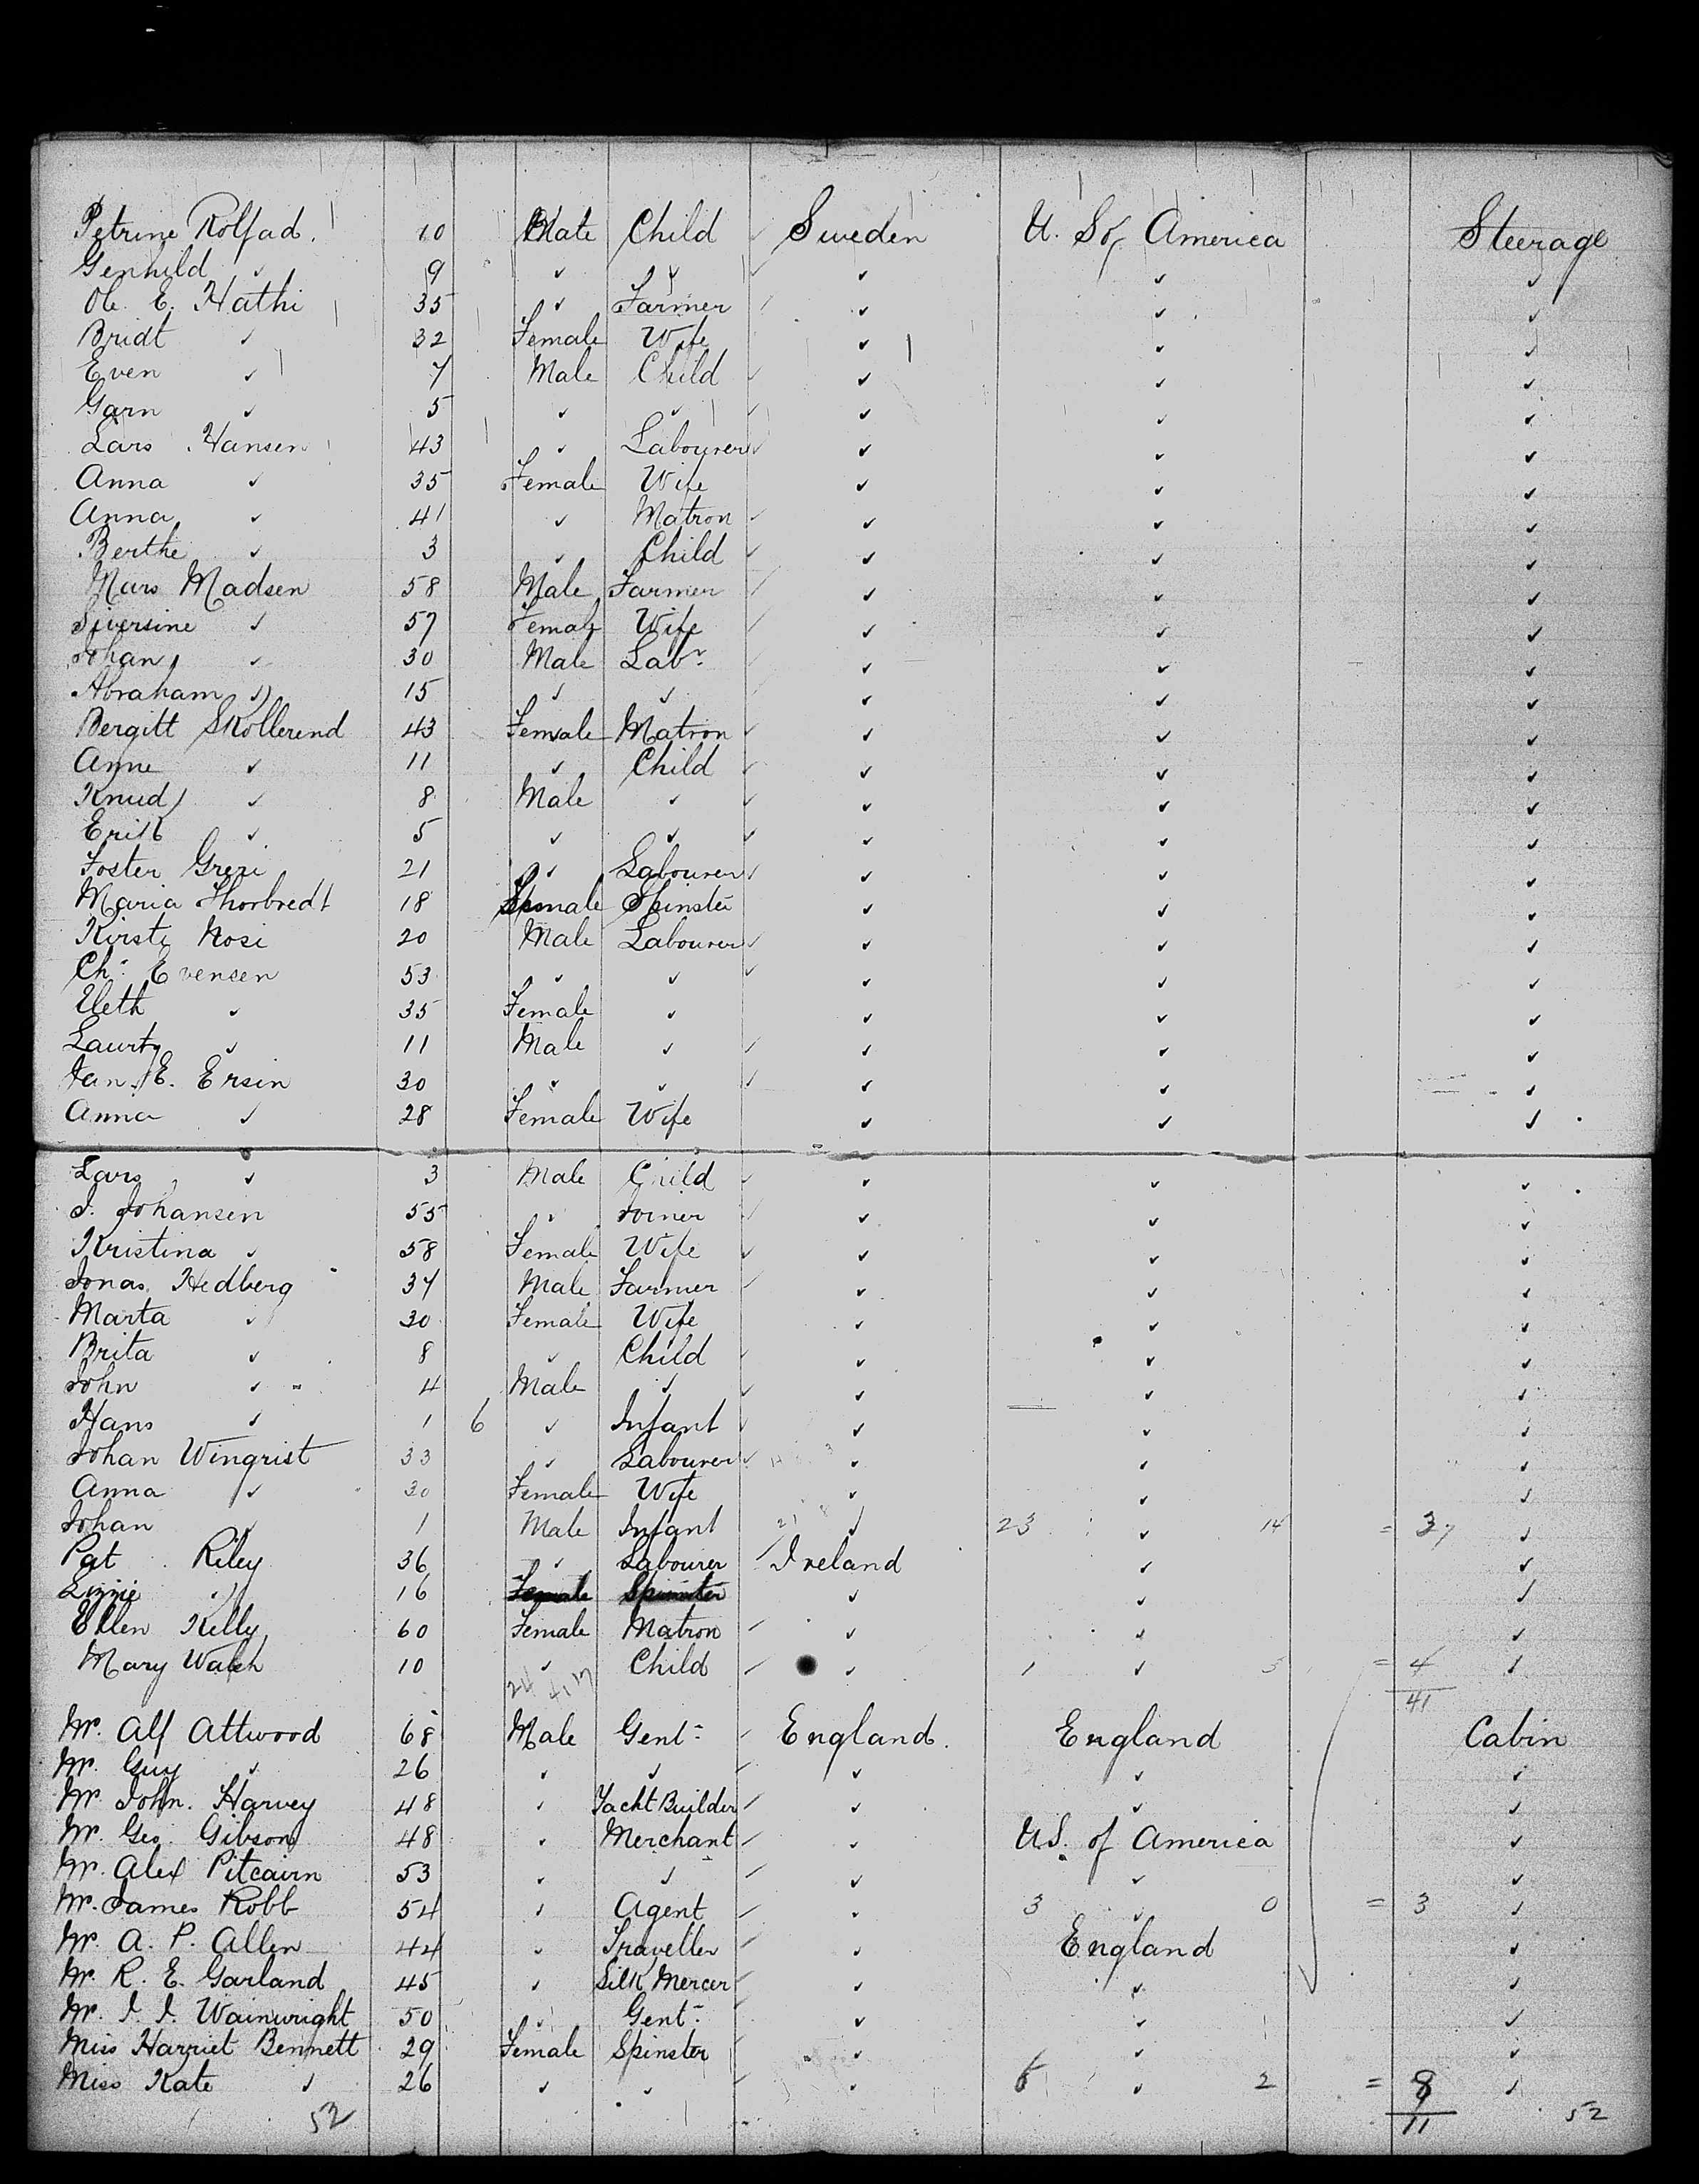 Petrine Rolfad. 10 Male Child Sweden U. S of America Steerage
Genhild ✓ 9 ✓ ✓ ✓ ✓ ✓
Ole E. Hathi 35 ✓ Farmer ✓ ✓ ✓
Bridt ✓ 32 Female Wife ✓ ✓ ✓
Even ✓ 7 Male Child ✓ ✓ ✓
Garn ✓ 5 ✓ ✓ ✓ ✓ ✓
Lars Hansen 43 ✓ Labourer ✓ ✓ ✓
Anna ✓ 35 Female Wife ✓ ✓ ✓
Anna ✓ 41 ✓ Matron ✓ ✓ ✓
Berthe ✓ 3 ✓ Child ✓ ✓ ✓
Mars Madsen 58 Male Farmer ✓ ✓ ✓
Siversine ✓ 57 Female Wife ✓ ✓ ✓
Johan ✓ 30 Male Labr ✓ ✓ ✓
Abraham ✓ 15 ✓ ✓ ✓ ✓ ✓
Bergitt Skollerend 43 Female Matron ✓ ✓ ✓
Anne ✓ 11 ✓ Child ✓ ✓ ✓
Knud ✓ 8 Male ✓ ✓ ✓ ✓
Erik ✓ 5 ✓ ✓ ✓ ✓ ✓
Foster Greri 21 ✓ Labourer ✓ ✓ ✓
Maria Thorbredt 18 Female Spinster ✓ ✓ ✓
Kirste Nosi 20 Male Labourer ✓ ✓ ✓
Chr Evensen 53 ✓ ✓ ✓ ✓ ✓
Eleth ✓ 35 Female ✓ ✓ ✓ ✓
Laurty ✓ 11 Male ✓ ✓ ✓ ✓
Jan. E. Ersin 30 ✓ ✓ ✓ ✓ ✓
Anna ✓ 28 Female Wife ✓ ✓ ✓
Lars ✓ 3 Male Child ✓ ✓ ✓
J. Johansen 55 ✓ Joiner ✓ ✓ ✓
Kristina ✓ 58 Female Wife ✓ ✓ ✓
Jonas Hedberg 37 Male Farmer ✓ ✓ ✓
Marta ✓ 30 Female Wife ✓ ✓ ✓
Brita ✓ 8 ✓ Child ✓ ✓ ✓
John ✓ 4 Male ✓ ✓ ✓ ✓
Hans ✓ 1 6 ✓ Infant ✓ ✓ ✓
Johan Winqrist 33 ✓ Labourer ✓ ✓ ✓
Anna ✓ 30 Female Wife ✓ ✓ ✓
Johan ✓ 1 Male Infant ✓ 23 ✓ 14 = 37 ✓
Pat Riley 36 ✓ Labourer Ireland ✓ ✓
Lizzie ✓ 16 Female Spinster ✓ ✓ ✓
Ellen Kelly 60 Female Matron ✓ ✓ ✓
Mary Walsh 10 ✓ Child ✓ 1 ✓ 3 = 4 ✓
24 41 17 41
Mr. Alf Attwood 68 Male Gent England. England Cabin
Mr. Guy ✓ 26 ✓ ✓ ✓ ✓ ✓
Mr. John. Harvey 48 ✓ Yacht Builder ✓ ✓ ✓
Mr. Geo. Gibson 48 ✓ Merchant ✓ U.S. of America ✓
Mr. Alex Pitcairn 53 ✓ ✓ ✓ ✓ ✓
Mr. James Robb 54 ✓ Agent ✓ 3 ✓ 0 = 3 ✓
Mr. A. P. Allen 44 ✓ Traveller ✓ England ✓
Mr. R. E. Garland 45 ✓ Silk Mercer ✓ ✓ ✓
Mr. J. J. Wainwright 50 ✓ Gent ✓ ✓ ✓
Miss Harriet Bennett 29 Female Spinster ✓ ✓ ✓
Miss Kate ✓ 26 ✓ ✓ ✓ 6 ✓ 2 = 8 ✓
52 11 52